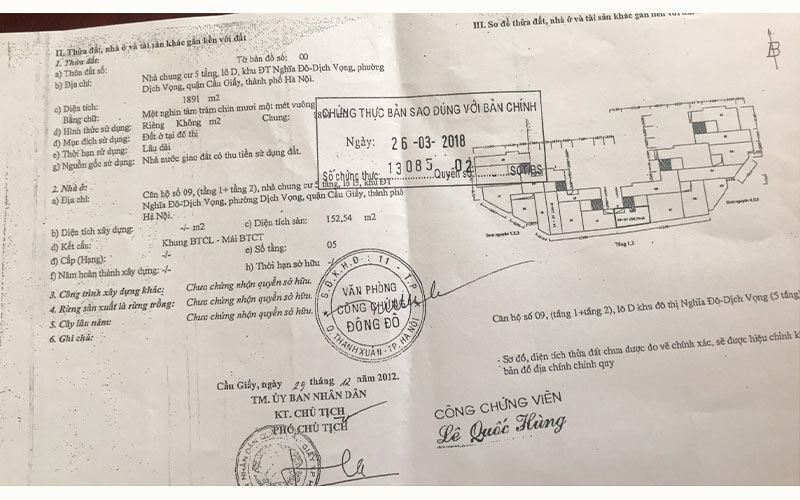 II. Thửa đất, nhà ở và tài sản khác gắn liền với đất
1. Thửa đất:
a) Thửa đất số: Tờ bản đồ số: 00
b) Địa chỉ: Nhà chung cư 5 tầng, lô D, khu ĐT Nghĩa Đô-Dịch Vọng, phường
Dịch Vọng, quận Cầu Giấy, thành phố Hà Nội.
c) Diện tích: 1891 m2
Bằng chữ: Một nghìn tám trăm chín mươi một mét vuông
d) Hình thức sử dụng: Riêng Không m2 Chung:
đ) Mục đích sử dụng: Đất ở tại đô thị
e) Thời hạn sử dụng: Lâu dài
g) Nguồn gốc sử dụng: Nhà nước giao đất có thu tiền sử dụng đất.
2. Nhà ở:
a) Địa chỉ: Căn hộ số 09, (tầng 1+ tầng 2), nhà chung cư 5 tầng, lô D, khu ĐT
Nghĩa Đô-Dịch Vọng, phường Dịch Vọng, quận Cầu Giấy, thành phố
Hà Nội.
b) Diện tích xây dựng: -/- m2 c) Diện tích sàn: 152,54 m2
d) Kết cấu: Khung BTCL - Mái BTCT
đ) Cấp (Hạng): -/- e) Số tầng: 05
f) Năm hoàn thành xây dựng: -/- h) Thời hạn sở hữu
3. Công trình xây dựng khác: Chưa chứng nhận quyền sở hữu.
4. Rừng sản xuất là rừng trồng: Chưa chứng nhận quyền sở hữu.
5. Cây lâu năm: Chưa chứng nhận quyền sở hữu.
6. Ghi chú:
Cầu Giấy, ngày 29 tháng 12 năm 2012.
TM. ỦY BAN NHÂN DÂN
KT. CHỦ TỊCH
PHÓ CHỦ TỊCH
CHỨNG THỰC BẢN SAO ĐÚNG VỚI BẢN CHÍNH
Ngày: 26-03-2018
Số chứng thực: 13085 Quyển số: 02 SCT/BS
S.Đ.K.H.Đ: 11 - T.P
VĂN PHÒNG
CÔNG CHỨNG
ĐÔNG ĐÔ
Q.THANH XUÂN - TP.HÀ NỘI
III. Sơ đồ thửa đất, nhà ở và tài sản khác gắn liền với đất
B
Tầng 1,2
Căn hộ số 09, (tầng 1+tầng 2), lô D khu đô thị Nghĩa Đô-Dịch Vọng (5 tầng)
- Sơ đồ, diện tích thửa đất chưa được đo vẽ chính xác, sẽ được hiệu chỉnh k
bản đồ địa chính chính quy
CÔNG CHỨNG VIÊN
Lê Quốc Hùng